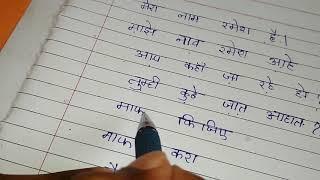 मेरा नाम रमेश है।
माझे नाव रमेश आहे
आप कहाँ जा रहे हो?
तुम्ही कुठे जात आहात?
माफ किजिए
माफ करा